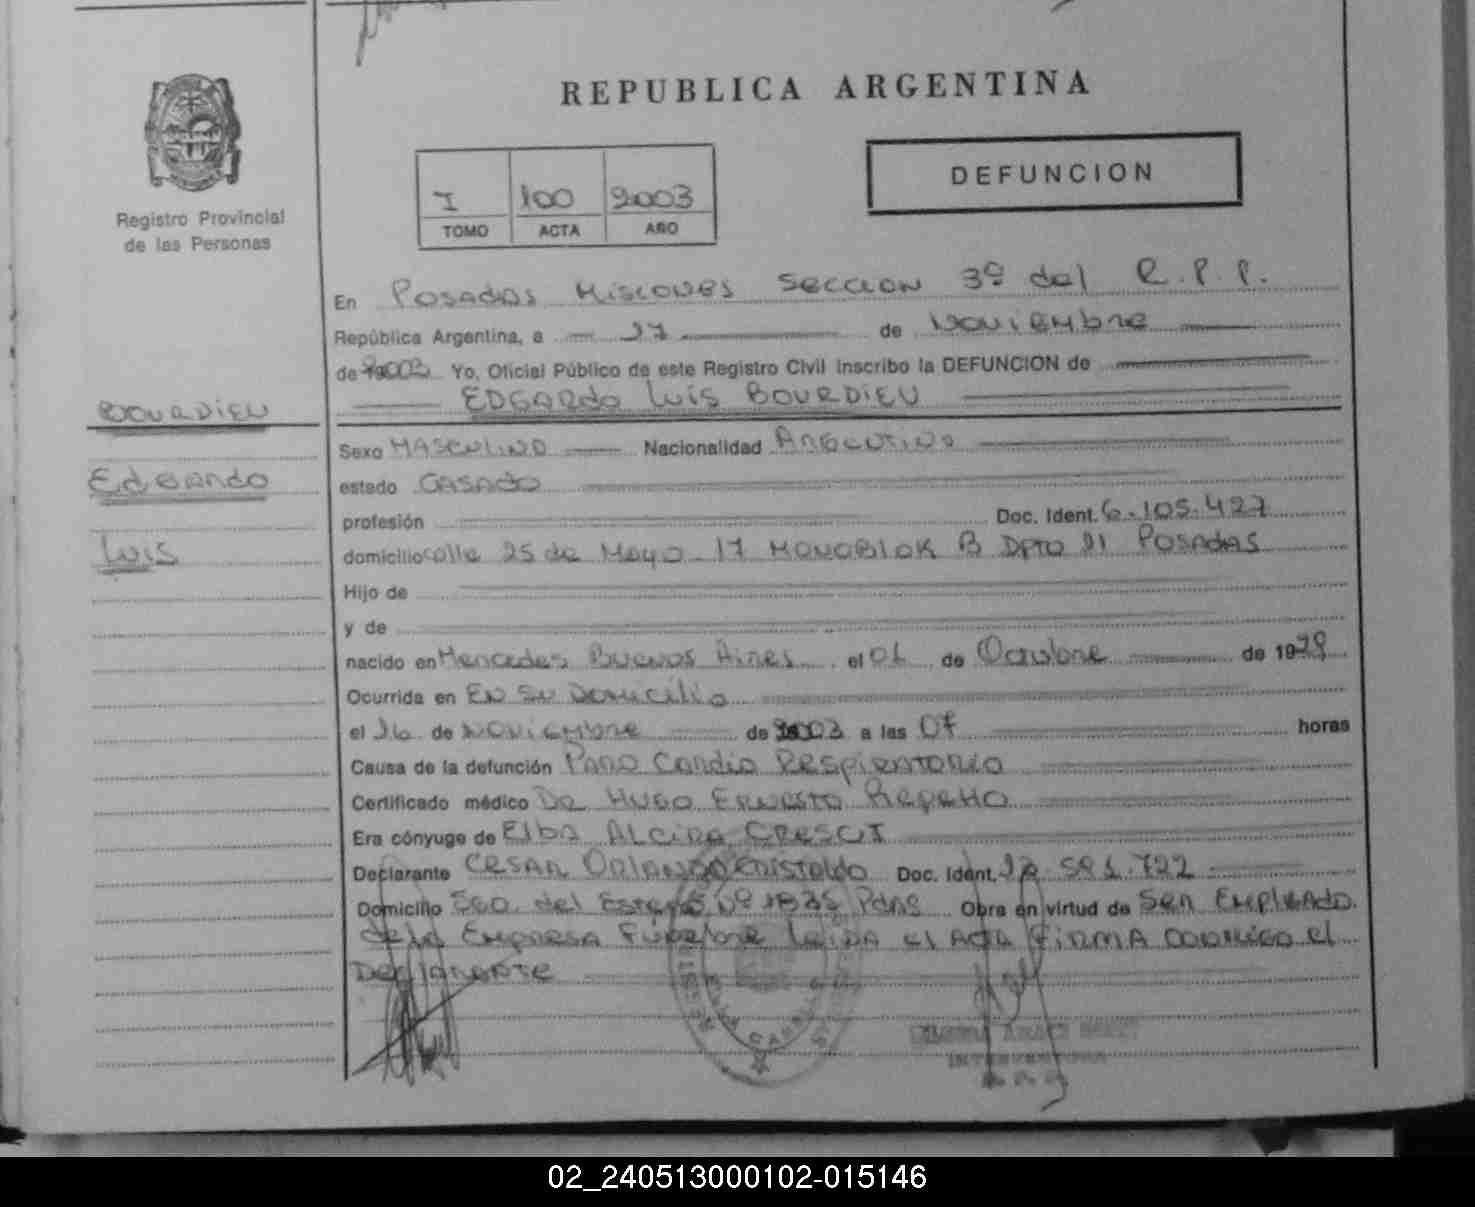 REPUBLICA ARGENTINA
Registro Provincial
de las Personas
I 100 2003
TOMO ACTA AÑO
DEFUNCION
En Posadas Misiones Seccion 3º del R.P.P.
República Argentina, a 27 de Noviembre
de 2003 Yo, Oficial Público de este Registro Civil inscribo la DEFUNCION de
EDGARDO Luis BOURDIEU
BOURDIEU
Edgardo
Luis
Sexo MASCULINO Nacionalidad Argentino
estado CASADO
profesión Doc. Ident. 6.105.427
domicilio calle 25 de Mayo 17 MONOBLOK B DPTO 21 POSADAS
Hijo de
y de
nacido en Mercedes Buenos Aires el 01 de Octubre de 19
Ocurrida en En Su Domicilio
el 26 de Noviembre de 2003 a las 07 horas
Causa de la defunción Paro Cardio Respiratorio
Certificado médico Dr Hugo Ernesto Repetto
Era cónyuge de Elba Alcira
Declarante Cesar Orlando Doc. Ident.
Domicilio Sgo. del Estero Nº Pdas Obra en virtud de Ser Empleado
de la Empresa Funebre leida el Acta firma conmigo el
Declarante
02_240513000102-015146